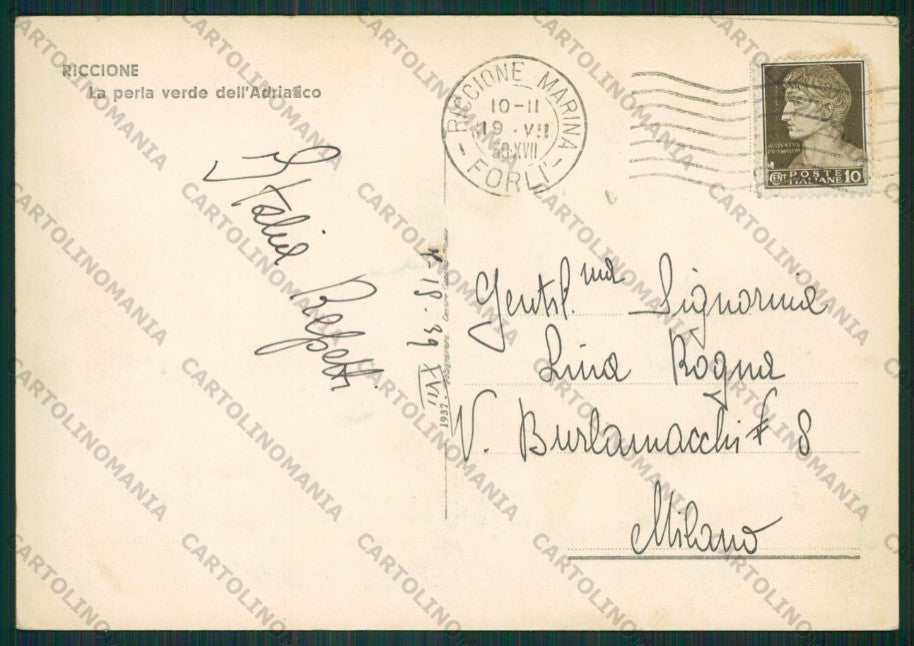 RICCIONE
La perla verde dell'Adriatico
RICCIONE MARINA
10-11
19 · VII
39·XVII
- FORLI' -
POSTE
ITALIANE
CENT 10
Italia
18·39 XVII
1937
Gentil.ma Signorina
Lina Rogna
V. Burlamacchi 8
Milano
CARTOLINOMANIA